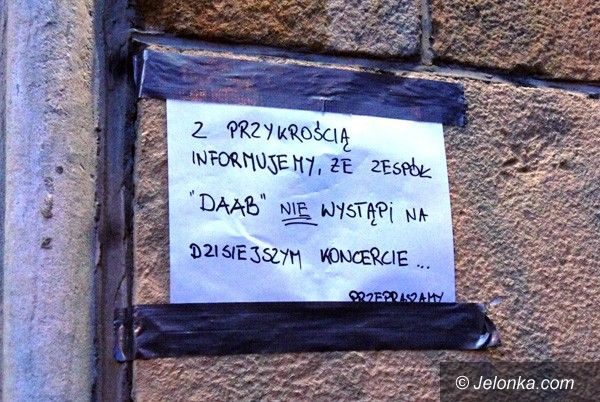 Z PRZYKROŚCIĄ
INFORMUJEMY, ŻE ZESPÓŁ
"DAAB" NIE WYSTĄPI NA
DZISIEJSZYM KONCERCIE ...
PRZEPRASZAMY
© Jelonka.com